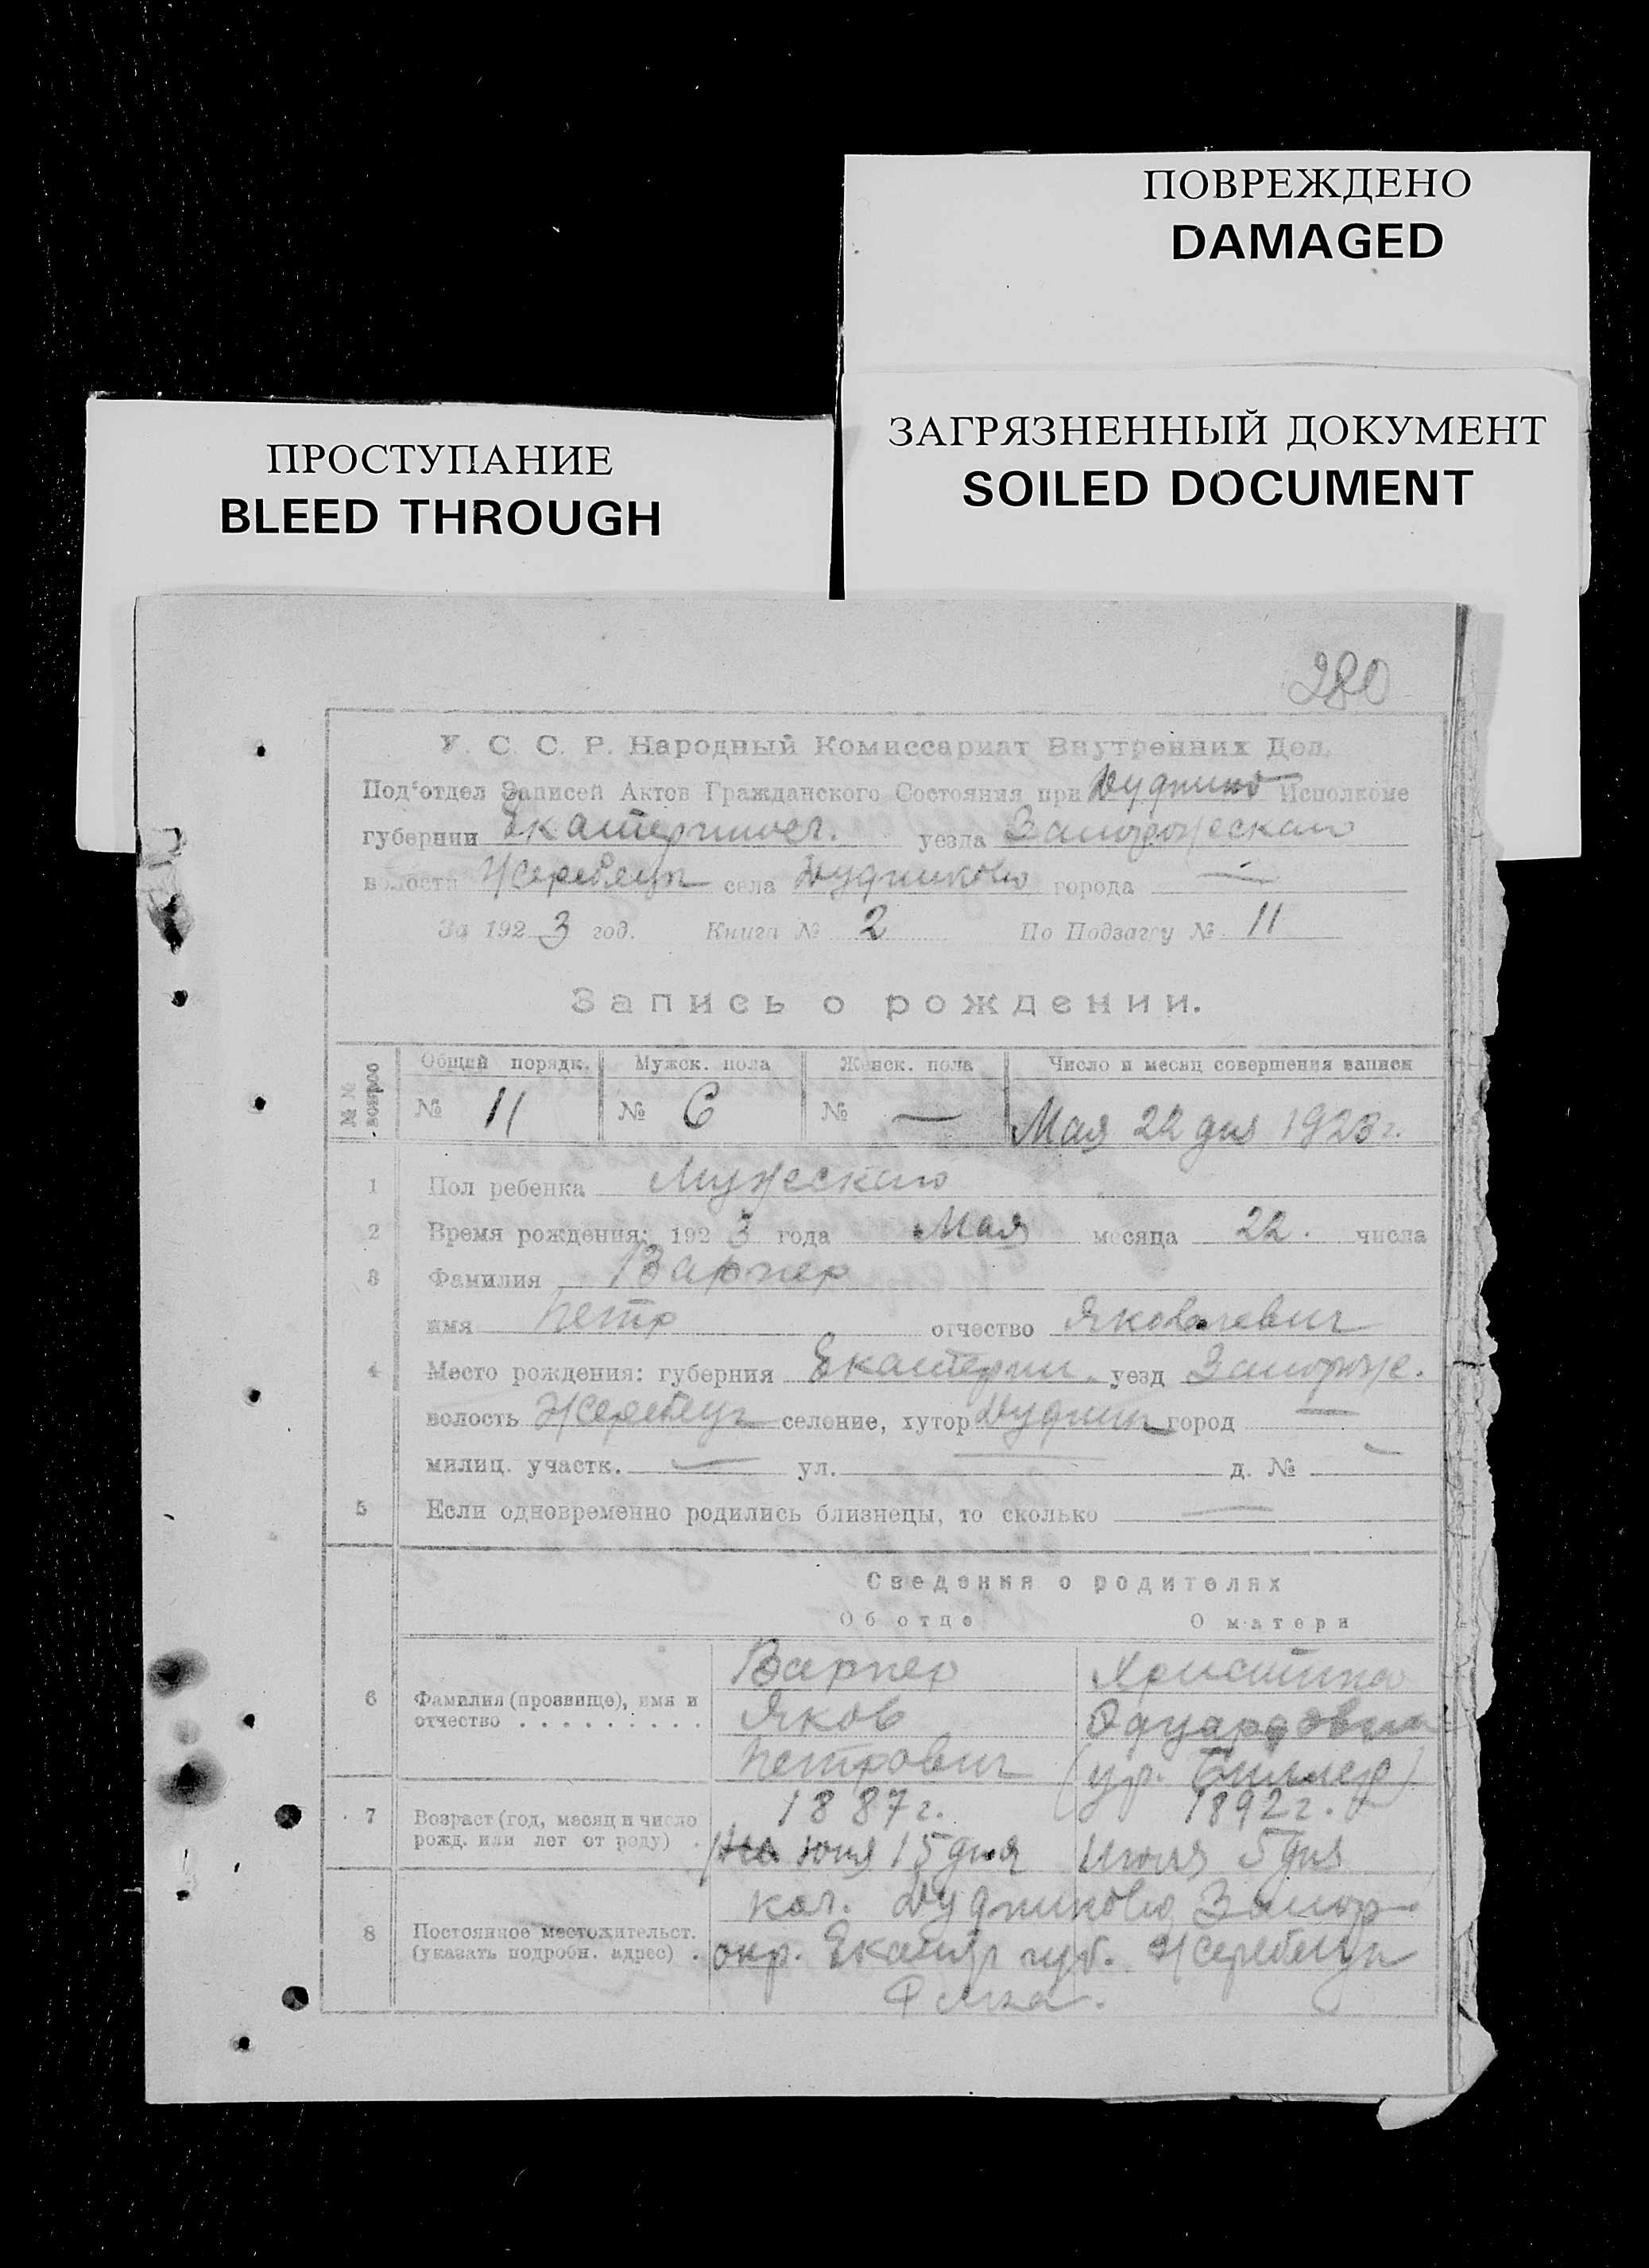 ПОВРЕЖДЕНО
DAMAGED
ЗАГРЯЗНЕННЫЙ ДОКУМЕНТ
SOILED DOCUMENT
ПРОСТУПАНИЕ
BLEED THROUGH
280
У. С. С. Р. Народный Комиссариат Внутренних Дел.
Под'отдел Записей Актов Гражданского Состояния при Дудников Исполкоме
губернии Екатериносл. уезда Запорожского
волости Жеребецк села Дудниково города —
За 1923 год. Книга № 2 По Подзагсу № 11
Запись о рождении.
№№ вопрос Общий порядк. Мужск. пола Женск. пола Число и месяц совершения записи
№ 11 № 6 № — Мая 22 дня 1923 г.
1 Пол ребенка Мужеского
2 Время рождения: 1923 года Мая месяца 22. числа
3 Фамилия Варнер
имя Петр отчество Яковлевич
4 Место рождения: губерния Екатерин. уезд Запорож.
волость Жеребецк селение, хутор Дудник город —
милиц. участк. — ул. — д. № —
5 Если одновременно родились близнецы, то сколько —
Сведения о родителях
Об отце О матери
Варнер Христина
6 Фамилия (прозвище), имя и Яков Эдуардовна
отчество . . . . . . . . . Петрович (ур. Биллер)
7 Возраст (год, месяц и число 1887 г. 1892 г.
рожд. или лет от роду) . Июня 15 дня Июля 5 дня
кол. Дудниково Запор
8 Постоянное местожительст.
(указать подробн. адрес) . окр. Екатер губ. Жеребецк